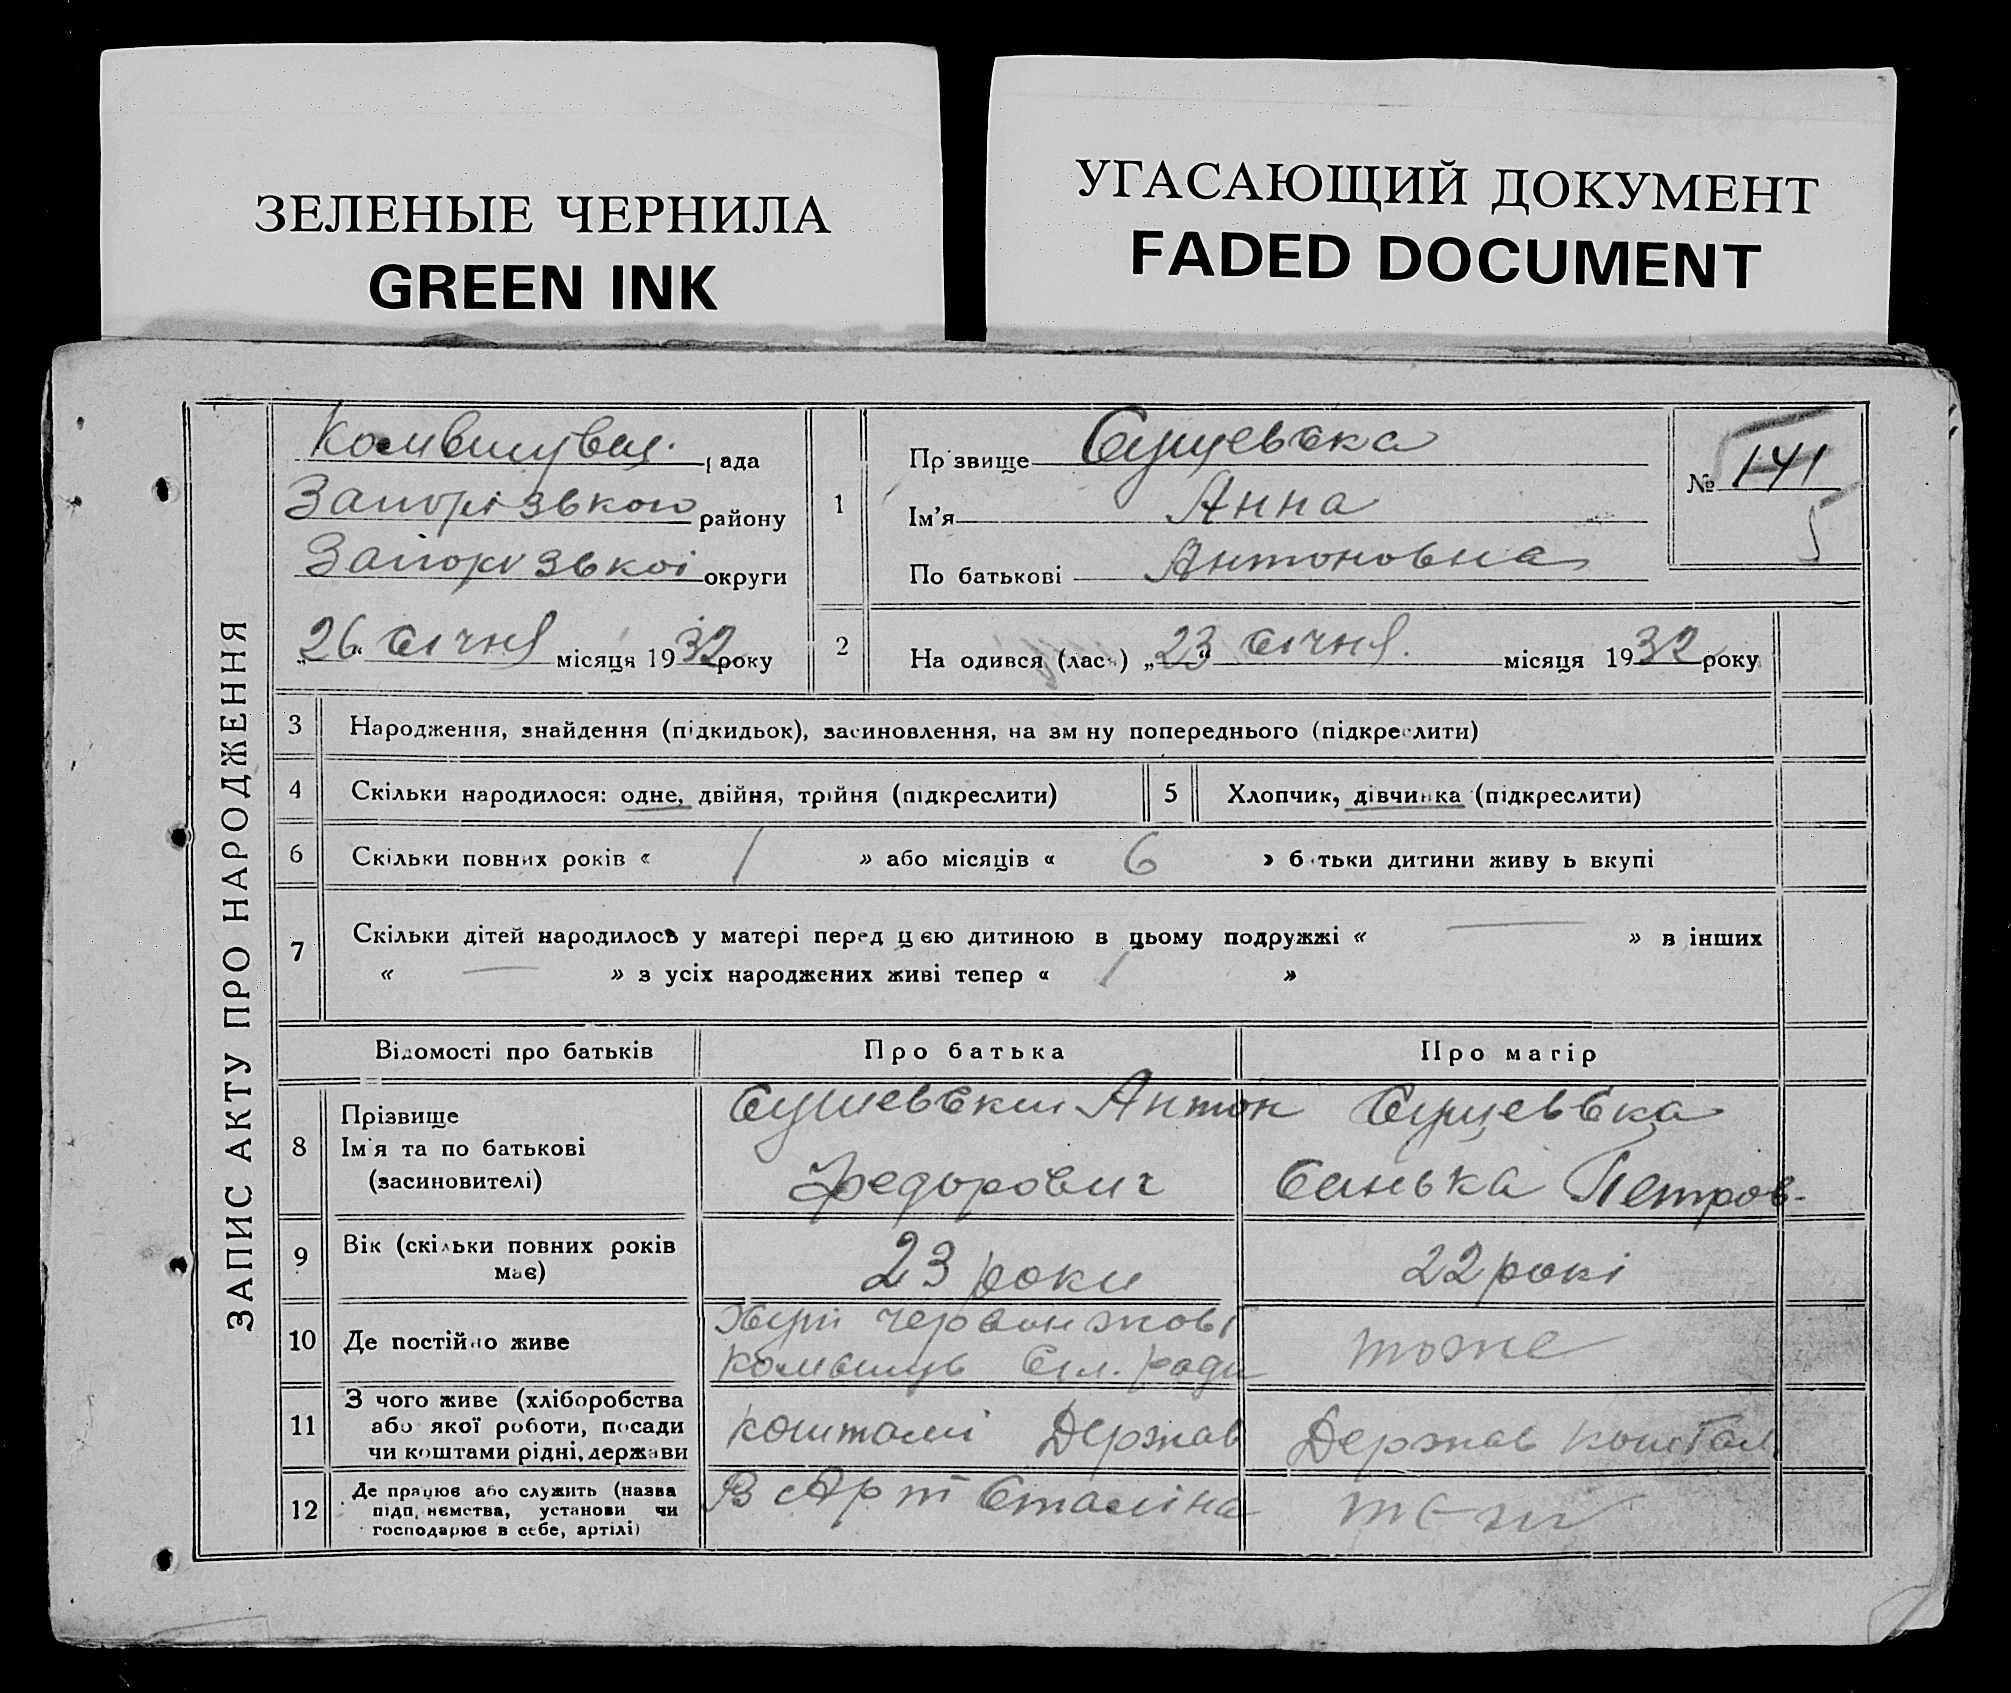 ЗЕЛЕНЫЕ ЧЕРНИЛА
GREEN INK
УГАСАЮЩИЙ ДОКУМЕНТ
FADED DOCUMENT
ЗАПИС АКТУ ПРО НАРОДЖЕННЯ
Комишувац. рада
Запорізького району
Запорізької округи
„26“ січня місяця 1932 року
1
Прізвище Сущевська
Ім'я Анна
По батькові Антоновна
№ 141
5
2 На одився (лась) „23“ січня. місяця 1932 року
3 Народження, знайдення (підкидьок), засиновлення, на зм ну попереднього (підкреслити)
4 Скільки народилося: одне, двійня, трійня (підкреслити) 5 Хлопчик, дівчинка (підкреслити)
6 Скільки повних років « 1 » або місяців « 6 » б тьки дитини живу ь вкупі
7 Скільки дітей народилось у матері перед цією дитиною в цьому подружжі « — » в інших
« — » з усіх народжених живі тепер « 1 »
Відомості про батьків Про батька Про матір
8 Прізвище
Ім'я та по батькові
(засиновителі)
Сущевский Антон
Федорович
Сущевська
Санька Петров-
9 Вік (скільки повних років
має)
23 роки 22 рокі
10 Де постійно живе
Комишув Сіл. ради
тоже
11 З чого живе (хліборобства
або якої роботи, посади
чи коштами рідні, держави
коштамі Держав Держав коштам
12 Де працює або служить (назва
підп, нємства, установи чи
господарює в себе, артілі)
В Арт Сталіна